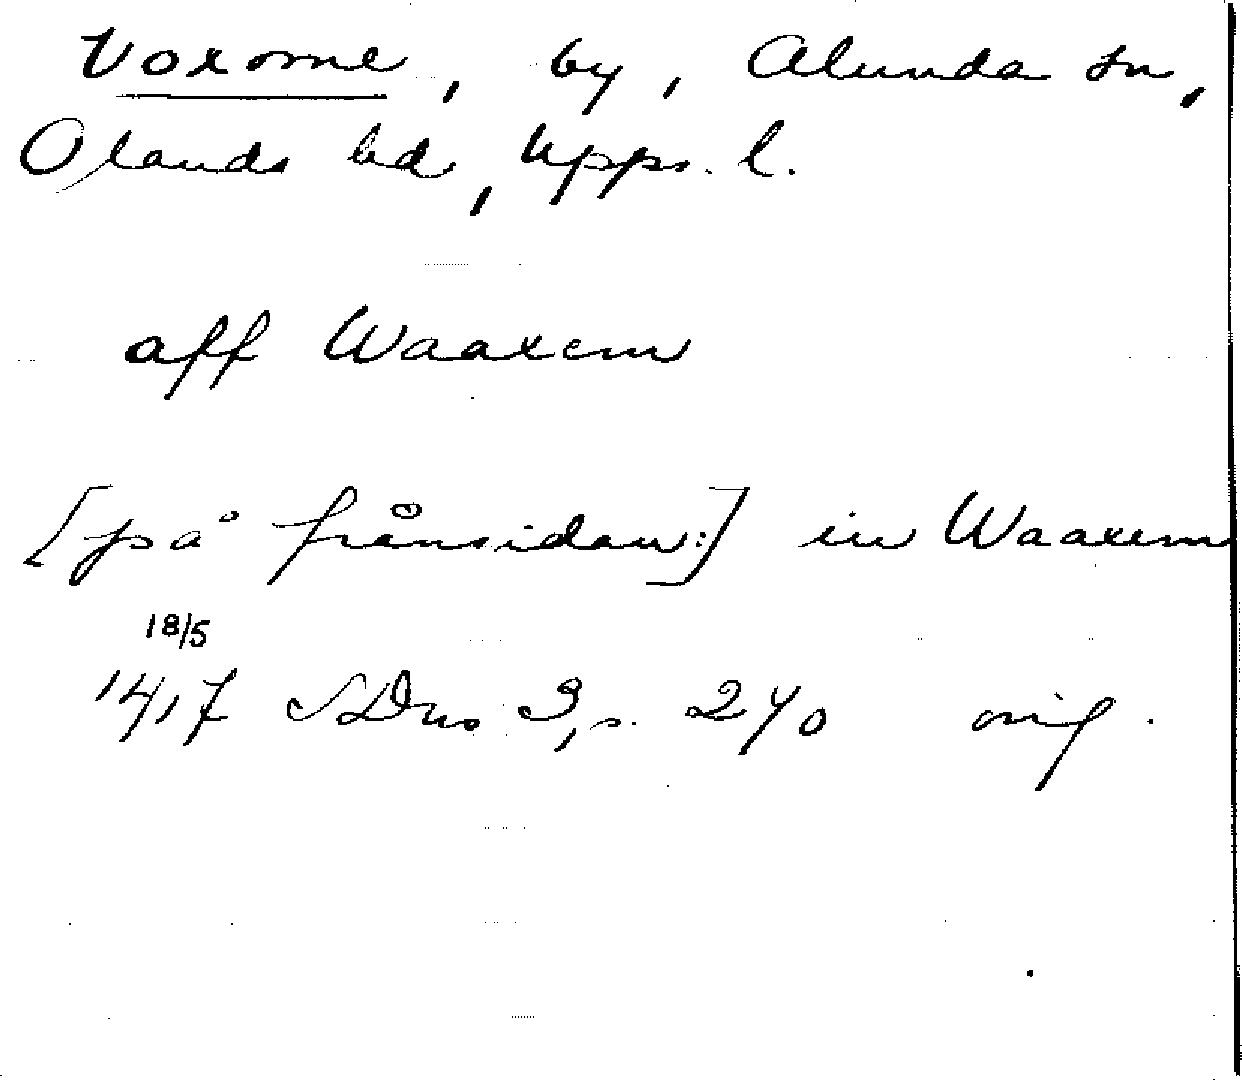 Voxome, by, Alunda sn,
Olands hd, Upps. l.
aff Waaxem
[på frånsidan:] in Waaxem
18/5
1417 SDns 3, s. 240 orig.